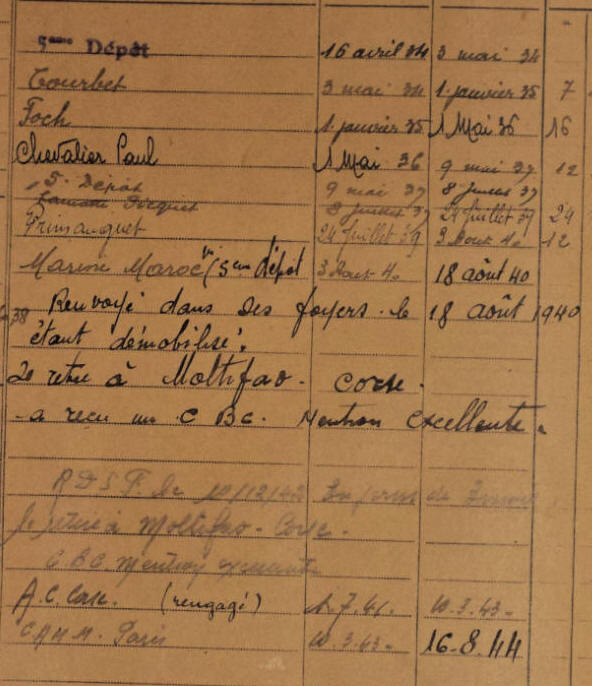 5ème Dépôt 16 avril 34 3 mai 34
Tourbet 3 mai 34 1 janvier 35 7
Foch 1 janvier 35 1 Mai 36 16
Chevalier Paul 1 Mai 36 9 mai 37 12
5. Dépôt 9 mai 37 8 juillet 37
Lamotte Picquet 8 juillet 37 24 Juillet 39 24
Primauguet 24 Juillet 39 3 Aout 40 12
Marine Maroc (5em dépôt 3 Aout 40 18 août 40
38 Renvoyé dans ses foyers le 18 août 1940
étant démobilisé.
Se retire à Moltifao - Corse.
a reçu un C B C. Mention Excellente.
R D S F. le 10/12/42
Se retire à Moltifao - Corse.
C.B.C. Mention
A.C. Corse. (rengagé) 1.7.41. 10.3.43.
Paris 10.3.43. 16.8.44